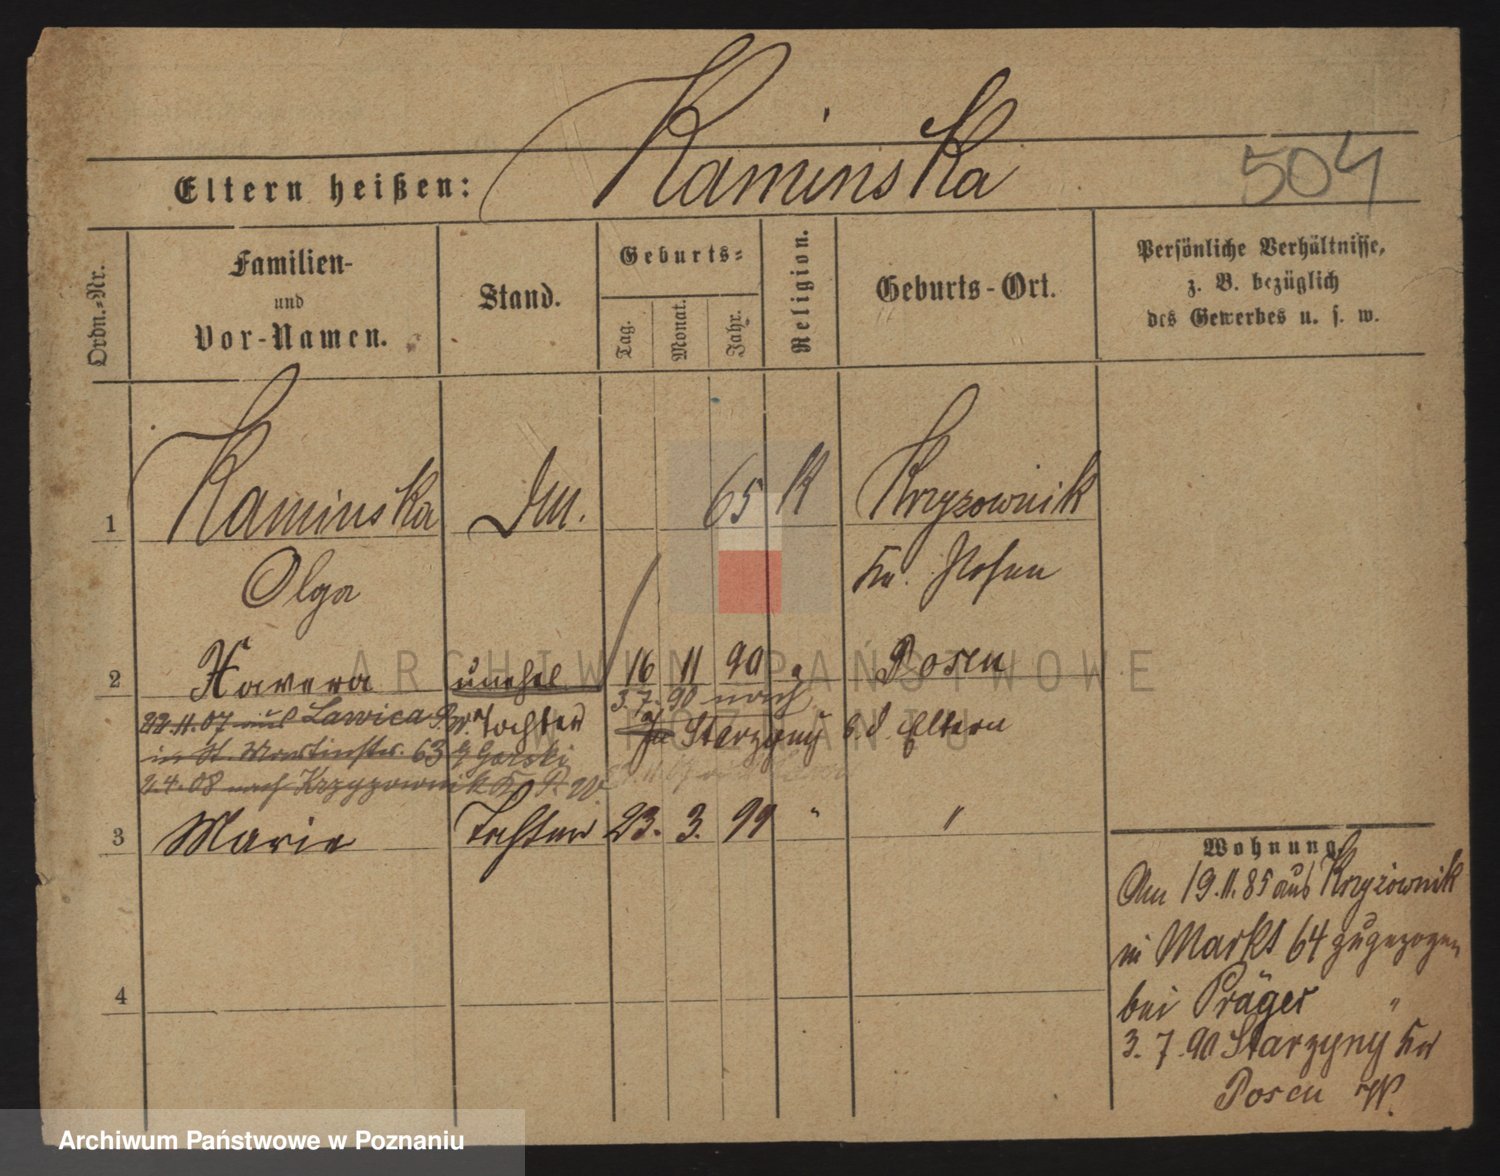 Kaminska
Eltern heißen:
504
Ordn.-Nr.
Familien-
und
Vor-Namen.
Stand.
Geburts-
Tag.
Monat.
Jahr.
Religion.
Geburts-Ort.
Persönliche Verhältnisse,
z. B. bezüglich
des Gewerbes u. s. w.
1 Kaminska 65 K Krzyzownik
Olga Posen
2 Xavera unehel 16 11 90 Posen
3.7.90 nach
22.11.07 aus Lawica P.W. Tochter
Starzyny b. d. Eltern
in St. Martinstr. 63 b Gorski
2.4.08 nach Krzyzownik Kr P. W.
3 Marie Tochter 23. 3. 99 " "
4
Wohnung.
Am 19.11.85 aus Krzyżownik
in Markt 64 zugezogen
bei Präger "
3.7.90 Starzyny Kr
Posen W.
ARCHIWUM PAŃSTWOWE
W POZNANIU
Archiwum Państwowe w Poznaniu